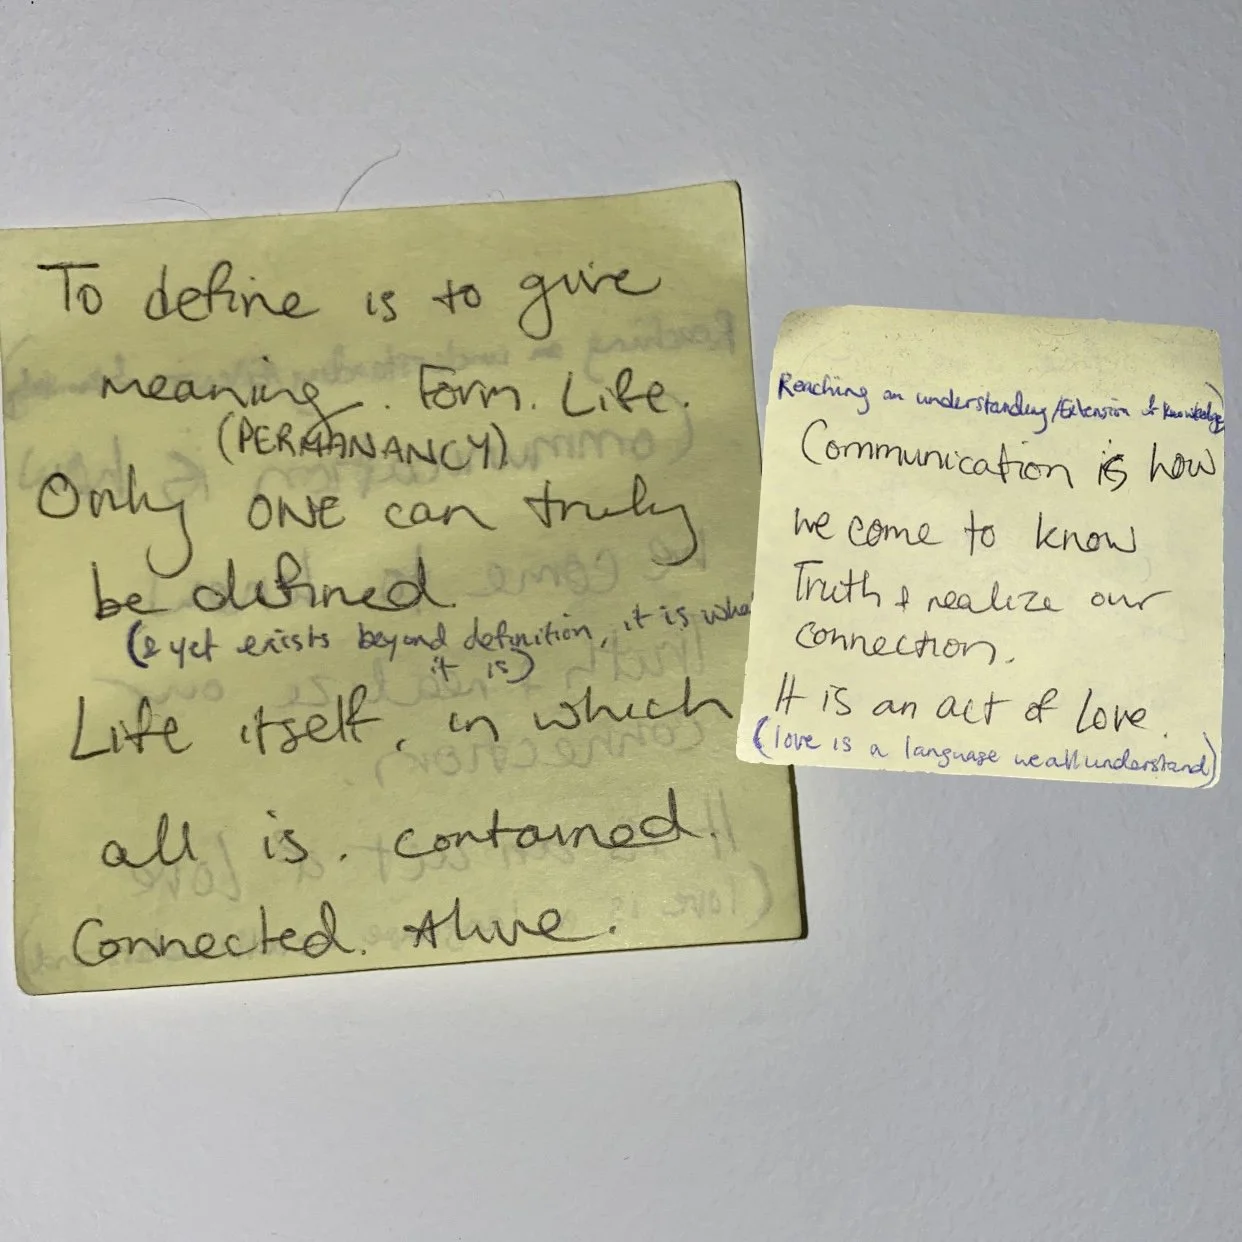 To define is to give
meaning. Form. Life.
(PERMANANCY)
Only ONE can truly
be defined.
(& yet exists beyond definition, it is what
it is)
Life itself, in which
all is. contained.
Connected. Alive.
Reaching an understanding/Extension of knowledge)
Communication is how
we come to know
Truth & realize our
connection.
It is an act of love.
(love is a language we all understand)